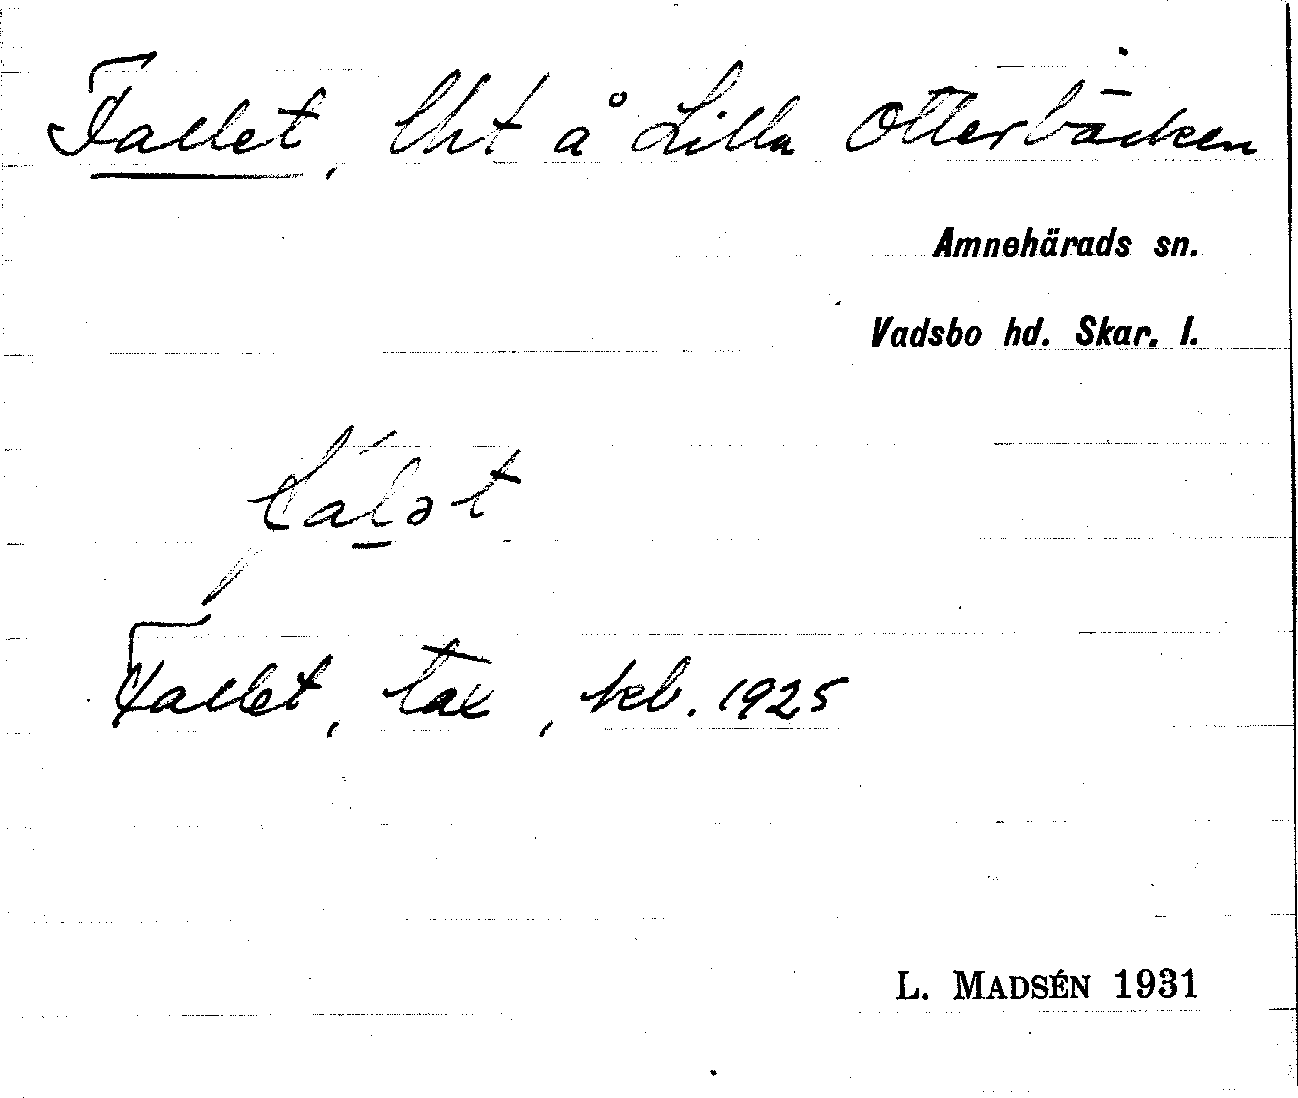 Fallet, lht å Lilla Otterbäcken
Amnehärads sn.
Vadsbo hd. Skar. l.
fálət
Fallet, tax, kb. 1925
L. MADSÉN 1931